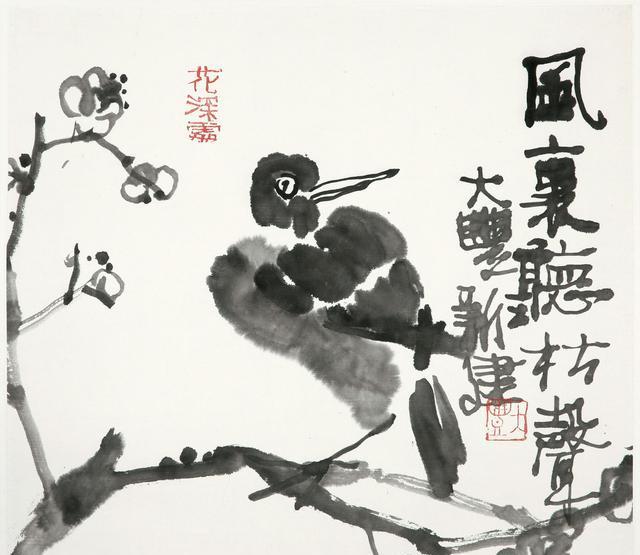 風裏聽枯聲
大豐新建
花深處
大豐